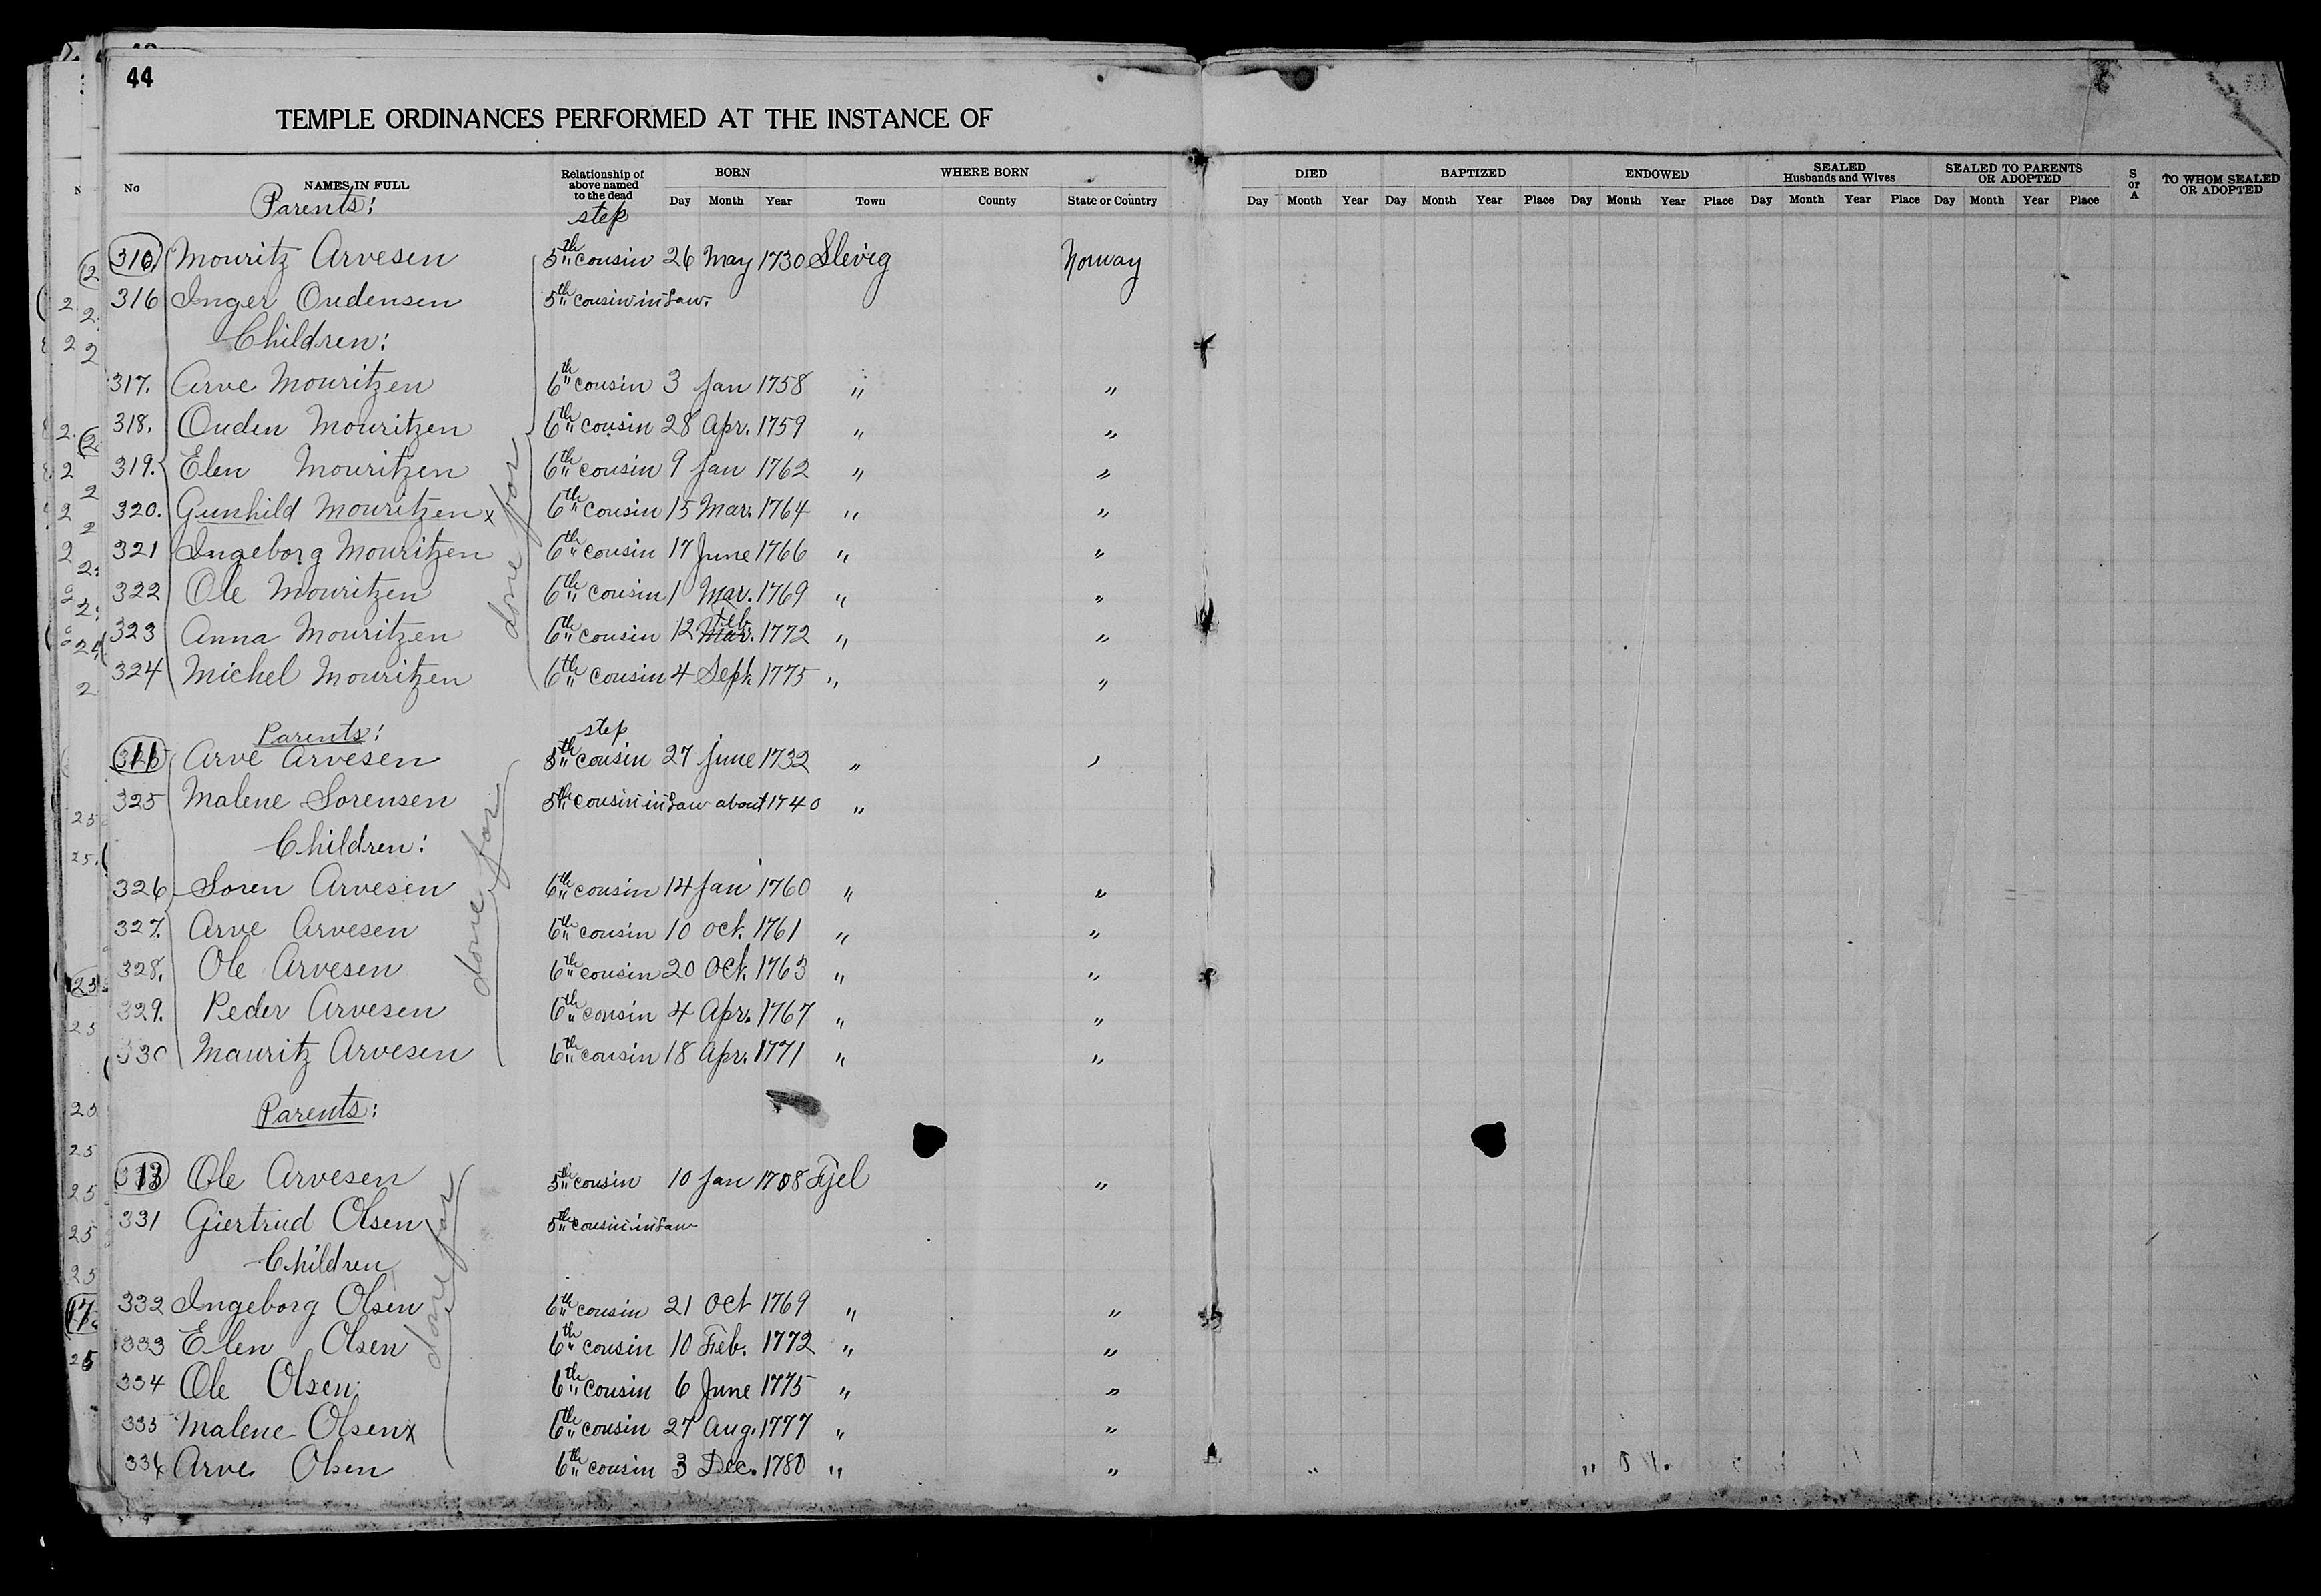 44
TEMPLE ORDINANCES PERFORMED AT THE INSTANCE OF
No NAMES IN FULL Relationship of above named to the dead BORN Day Month Year WHERE BORN Town County State or Country DIED Day Month Year BAPTIZED Day Month Year Place ENDOWED Day Month Year Place SEALED Husbands and Wives Day Month Year Place SEALED TO PARENTS OR ADOPTED Day Month Year Place S or A TO WHOM SEALED OR ADOPTED
Parents: step
310 Mouritz Arvesen 5th cousin 26 May 1730 Slevig Norway
316 Inger Oudensen 5th cousin in law.
Children:
317. Arve Mouritzen 6th cousin 3 Jan 1758 " "
318. Ouden Mouritzen 6th cousin 28 Apr. 1759 " "
319. Elen Mouritzen 6th cousin 9 Jan 1762 " "
320. Gunhild Mouritzen x 6th cousin 15 Mar. 1764 " "
321 Ingeborg Mouritzen 6th cousin 17 June 1766 " "
322 Ole Mouritzen 6th cousin 1 Mar. 1769 " "
323 Anna Mouritzen 6th cousin 12 Mar. Feb. 1772 " "
324 Michel Mouritzen 6th cousin 4 Sept. 1775 " "
done for
Parents: step
11 Arve Arvesen 5th cousin 27 June 1732 " "
325 Malene Sorensen 5th cousin in law about 1740 "
Children:
326 Soren Arvesen 6th cousin 14 Jan 1760 " "
327. Arve Arvesen 6th cousin 10 Oct. 1761 " "
328. Ole Arvesen 6th cousin 20 Oct. 1763 " "
329. Peder Arvesen 6th cousin 4 Apr. 1767 " "
330 Mauritz Arvesen 6th cousin 18 Apr. 1771 " "
done for
Parents:
13 Ole Arvesen 5th cousin 10 Jan 1708 Fjel "
331 Giertrud Olsen 5th cousin in law
Children
332 Ingeborg Olsen 6th cousin 21 Oct 1769 " "
333 Elen Olsen 6th cousin 10 Feb. 1772 " "
334 Ole Olsen 6th cousin 6 June 1775 " "
335 Malene Olsen x 6th cousin 27 Aug. 1777 " "
336 Arve Olsen 6th cousin 3 Dec. 1780 " "
done for